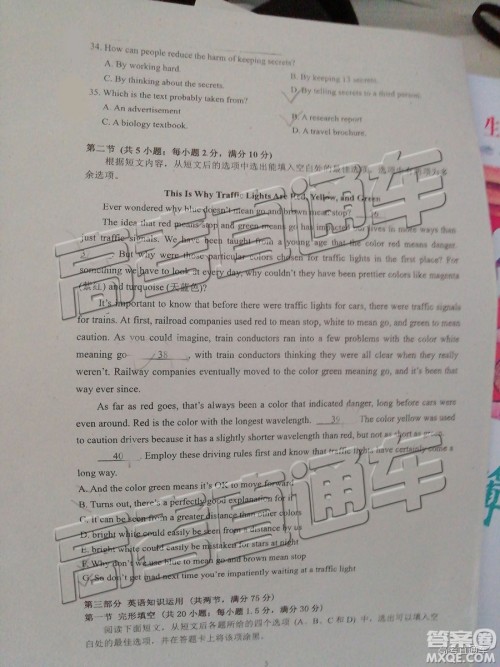 34. How can people reduce the harm of keeping secrets?
A. By working hard. B. By keeping 13 secrets.
C. By thinking about the secrets. D. By telling secrets to a third person.
35. Which is the text probably taken from?
A. An advertisement B. A research report
C. A biology textbook. D. A travel brochure.
第二节 (共5小题;每小题2分,满分10分)
根据短文内容,从短文后的选项中选出能填入空白处的最佳选项。选项中有两项为多
余选项。
This Is Why Traffic Lights Are Red, Yellow, and Green
Ever wondered why blue doesn't mean go and brown mean stop?
The idea that red means stop and green means go has impacted our lives in more ways than
just traffic signals. We have been taught from a young age that the color red means danger.
But why were those particular colors chosen for traffic lights in the first place? For
something we have to look at every day, why couldn't they have been prettier colors like magenta
(紫红) and turquoise (天蓝色)?
It's important to know that before there were traffic lights for cars, there were traffic signals
for trains. At first, railroad companies used red to mean stop, white to mean go, and green to mean
caution. As you could imagine, train conductors ran into a few problems with the color white
meaning go 38 , with train conductors thinking they were all clear when they really
weren't. Railway companies eventually moved to the color green meaning go, and it's been that
way ever since.
As far as red goes, that's always been a color that indicated danger, long before cars were
even around. Red is the color with the longest wavelength. 39 The color yellow was used
to caution drivers because it has a slightly shorter wavelength than red, but not as short as
40 . Employ these driving rules first and know that traffic lights have certainly come a
long way.
A. And the color green means it's OK to move forward
B. Turns out, there's a perfectly good explanation for it
C. it can be seen from a greater distance than other colors
D. bright white could easily be seen from a distance by us
E. bright white could easily be mistaken for stars at night
F. Why don't we use blue to mean go and brown mean stop
G. So don't get mad next time you're impatiently waiting at a traffic light
第三部分 英语知识运用 (共两节,满分75分)
第一节 完形填空 (共20小题;每小题1.5分,满分30分)
阅读下面短文,从短文后各题所给的四个选项 (A、B、C和D) 中,选出可以填入空
白处的最佳选项,并在答题卡上将该项涂黑。
3
高考直通车
高考直通车
高考直通车
答案圈
MXQE.COM